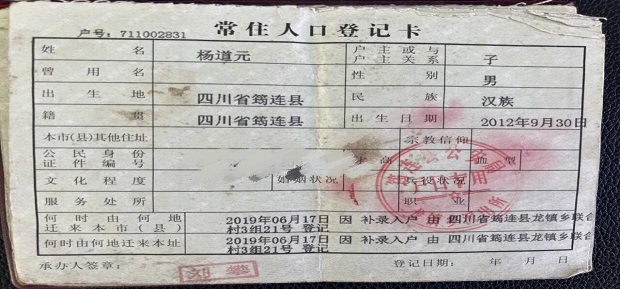 户号：711002831
常住人口登记卡
姓名 杨道元 户主或与户主关系 子
曾用名 性别 男
出生地 四川省筠连县 民族 汉族
籍贯 四川省筠连县 出生日期 2012年9月30日
本市(县)其他住址 宗教信仰
公民身份证件编号 身高 血型
文化程度 婚姻状况 兵役状况
服务处所 职业
何时由何地迁来本市(县) 2019年06月17日 因 补录入户 由 四川省筠连县龙镇乡联合村3组21号 登记
何时由何地迁来本址 2019年06月17日 因 补录入户 由 四川省筠连县龙镇乡联合村3组21号 登记
承办人签章： 登记日期： 年 月 日
户口专用